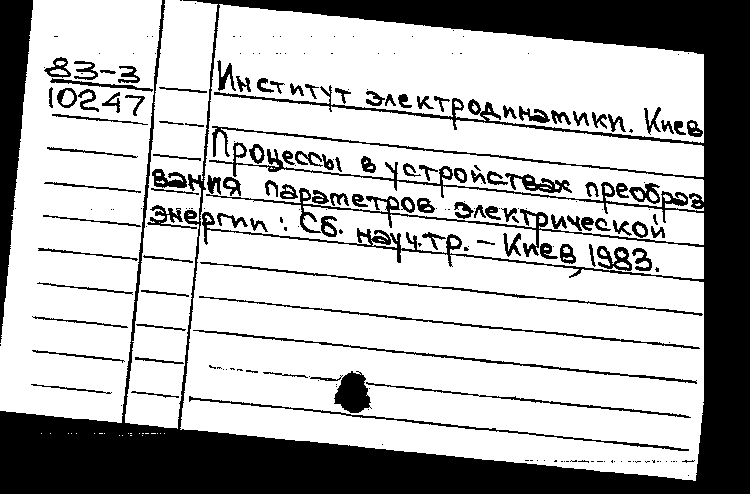 83-3
10247
Институт электродинамики. Киев
Процессы в устройствах преобраз
вания параметров электрической
энергии : Сб. науч.тр. – Киев, 1983.